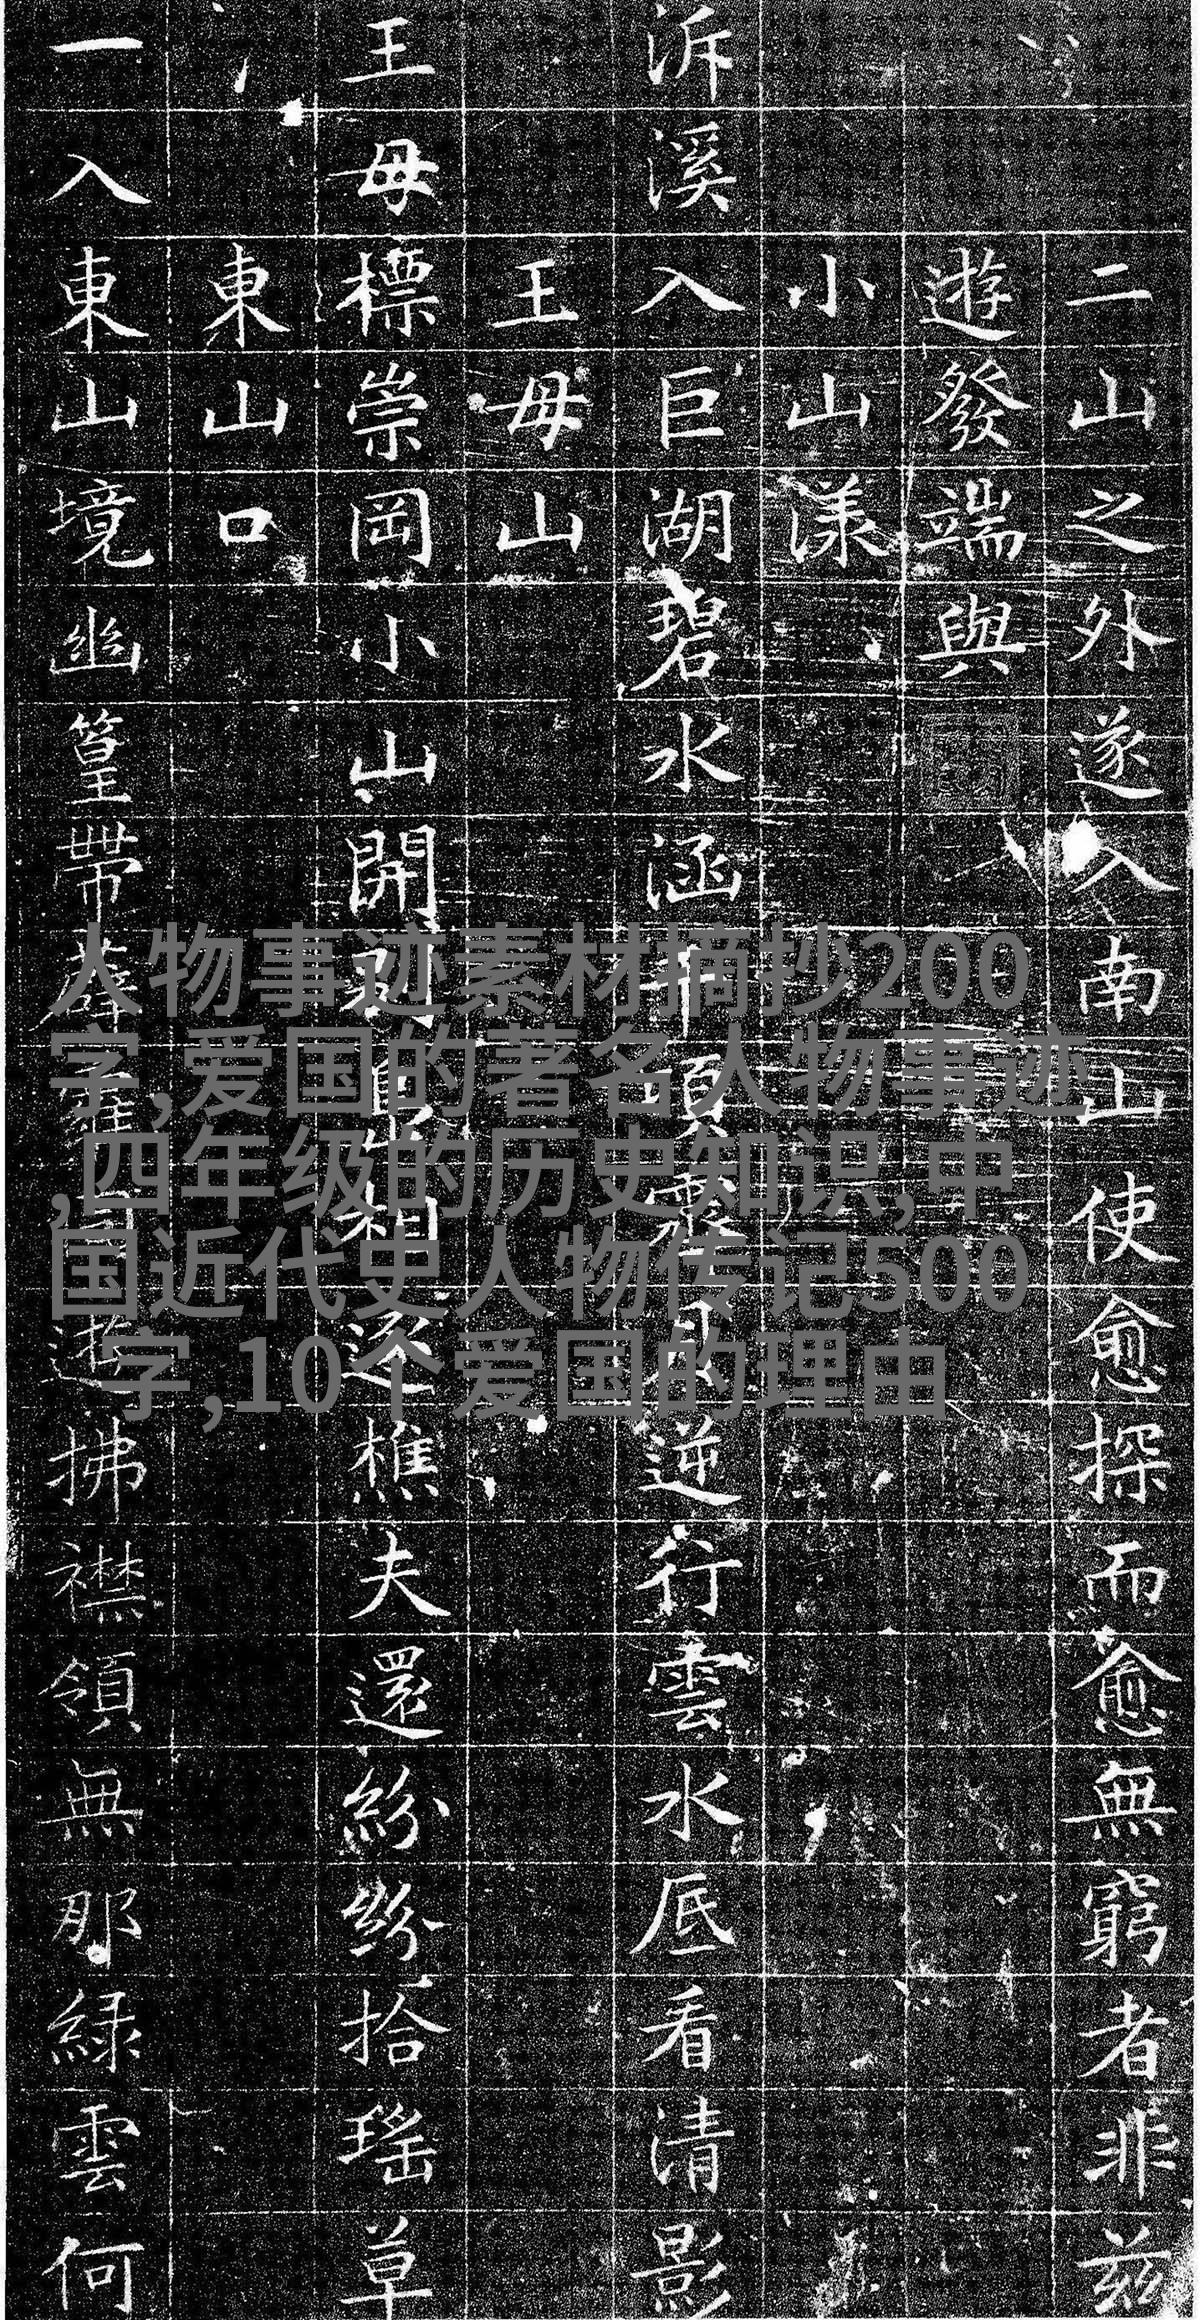 二山之外遂入南山使愈探而愈無窮者非茲
遊發端與
小山漾
泝溪入巨湖碧水涵頃逆行雲水底看清影
王母山
王母標崇岡小山開相樵夫還紛紛拾瑤草
東山口
一入東山境幽篁帶薜拂襟領無那綠雲何
人物事迹素材摘抄200
字,爱国的著名人物事迹
,四年级的历史知识,中
国近代史人物传记500
字,10个爱国的理由